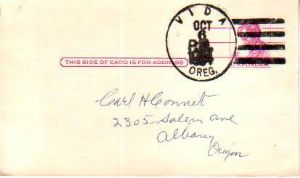 VIDA
OCT
6
OREG.
THIS SIDE OF CARD IS FOR ADDRESS
Carl H Connet
2305 Salem Ave
Albany
Oregon